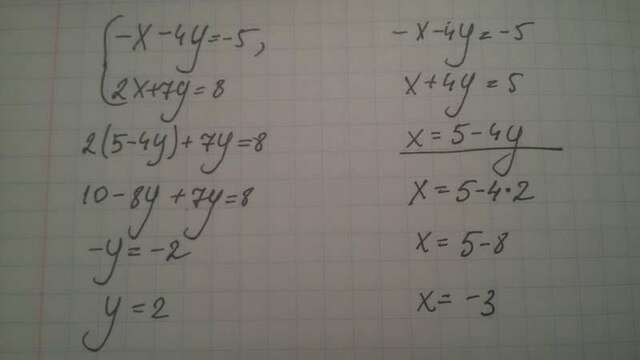 -x-4y=-5,
2x+7y=8
2(5-4y)+7y=8
10-8y+7y=8
-y=-2
y=2
-x-4y=-5
x+4y=5
x=5-4y
x=5-4·2
x=5-8
x=-3